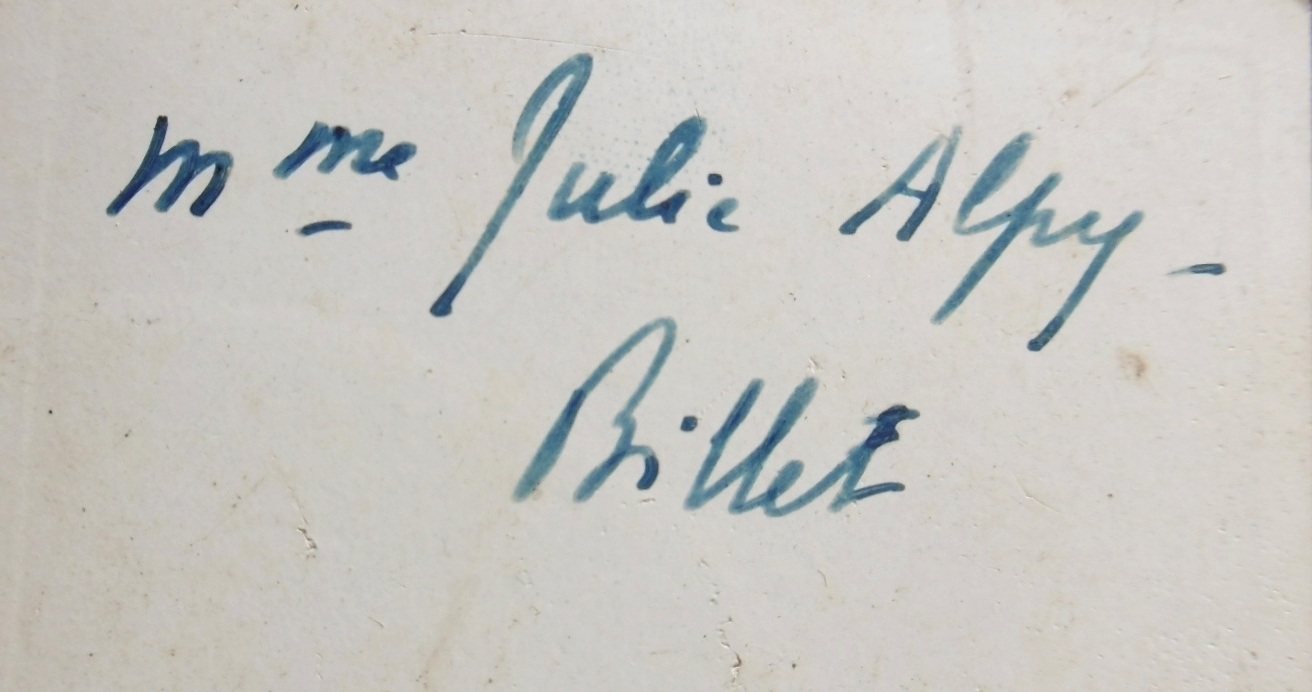 Mme Julie Alpy -
Billet